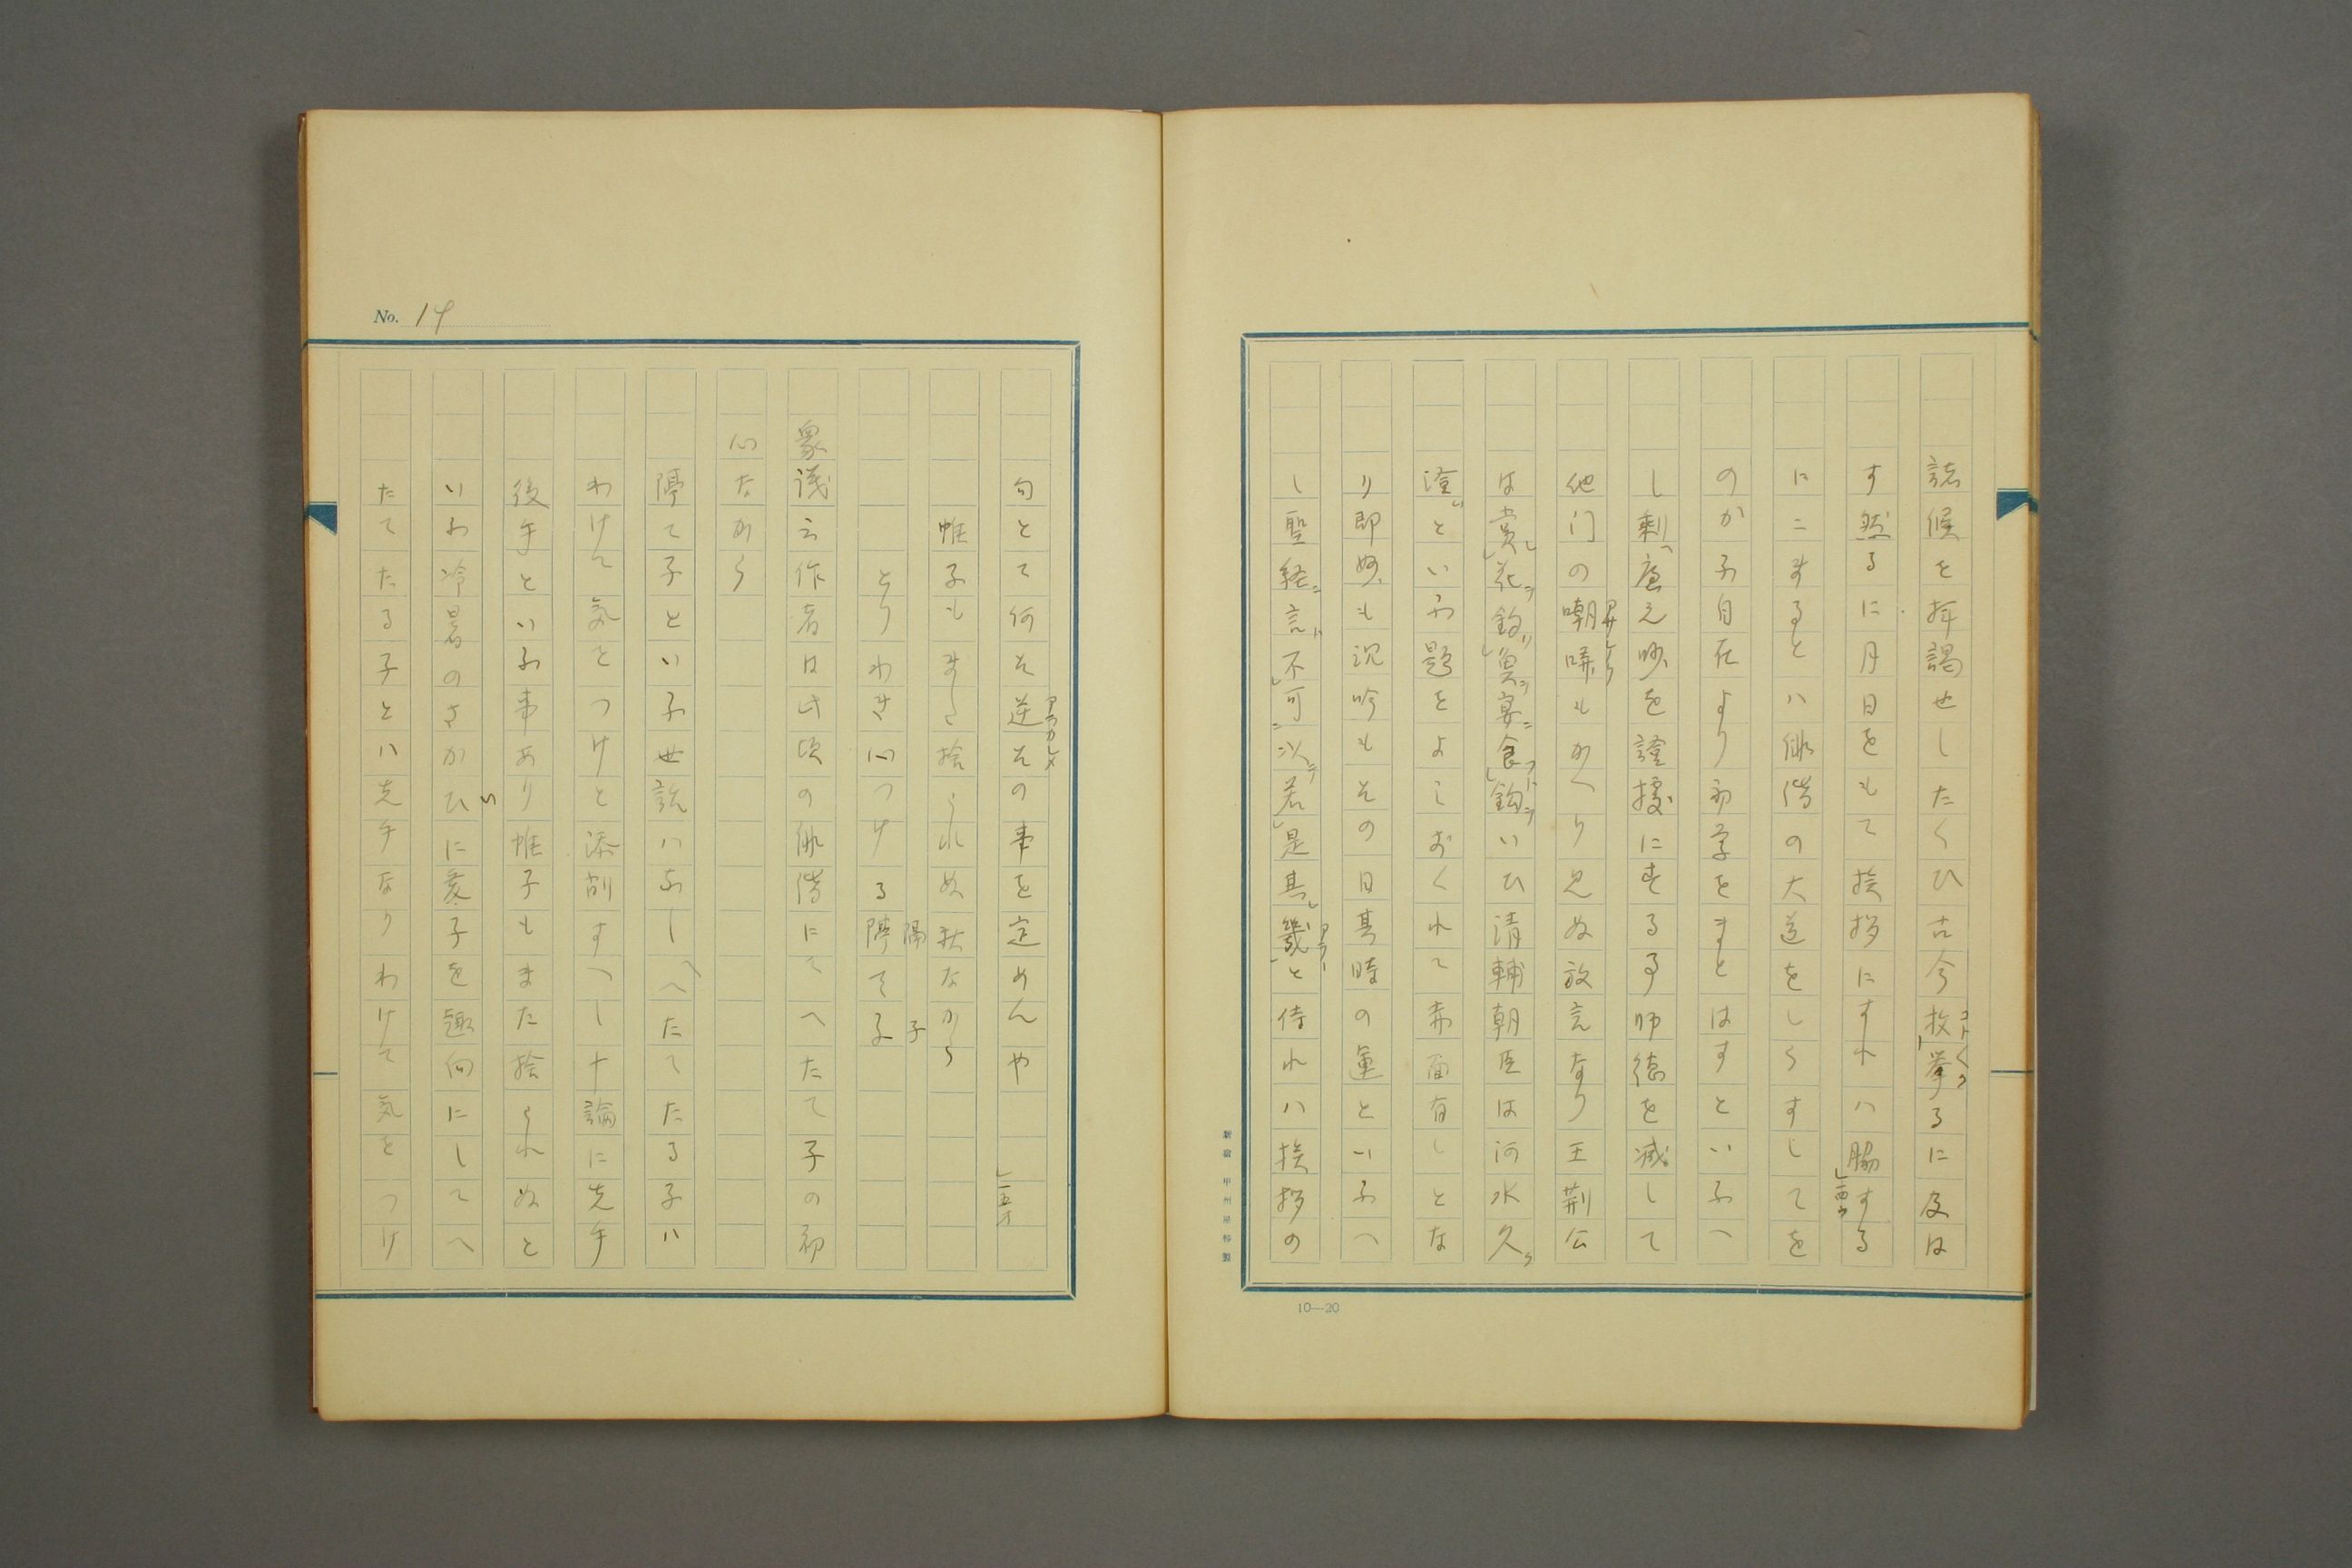 諸候を拝謁せしたくひ古今枚挙るに及は
す然るに月日をもて挨拶にすれハ脇する
にニするとハ俳諧の大道をしらすしてを
のか子自在より初学をまとはすといふへ
し剰虚元吵を證拠にする事師徳を減して
他门の嘲哢もかへり見ぬ放言なり王荆公
は賞花釣魚宴食鈎いひ清輔朝臣は河水久
澄といふ題をよミおくれて赤面有しとな
り即妙も沉吟もその日其時の運といふへ
し聖経言不可以若是其幾と侍れハ挨拶の
10—20
No. 14
句とて何そ逆その事を定めんや
帷子もまた捨られぬ秋なから
とりわき心つける隔て子
衆議云作者は此頃の俳諧にてへたて子の初
心なから
隔て子といふ世説ハなしへたてたる子ハ
わけて気をつけと添削すへし十論に先手
後手といふ事あり帷子もまた捨られぬと
いわ冷暑のさかひに亥子を趣向にしてへ
たてたる子とハ先手なりわけて気をつけ